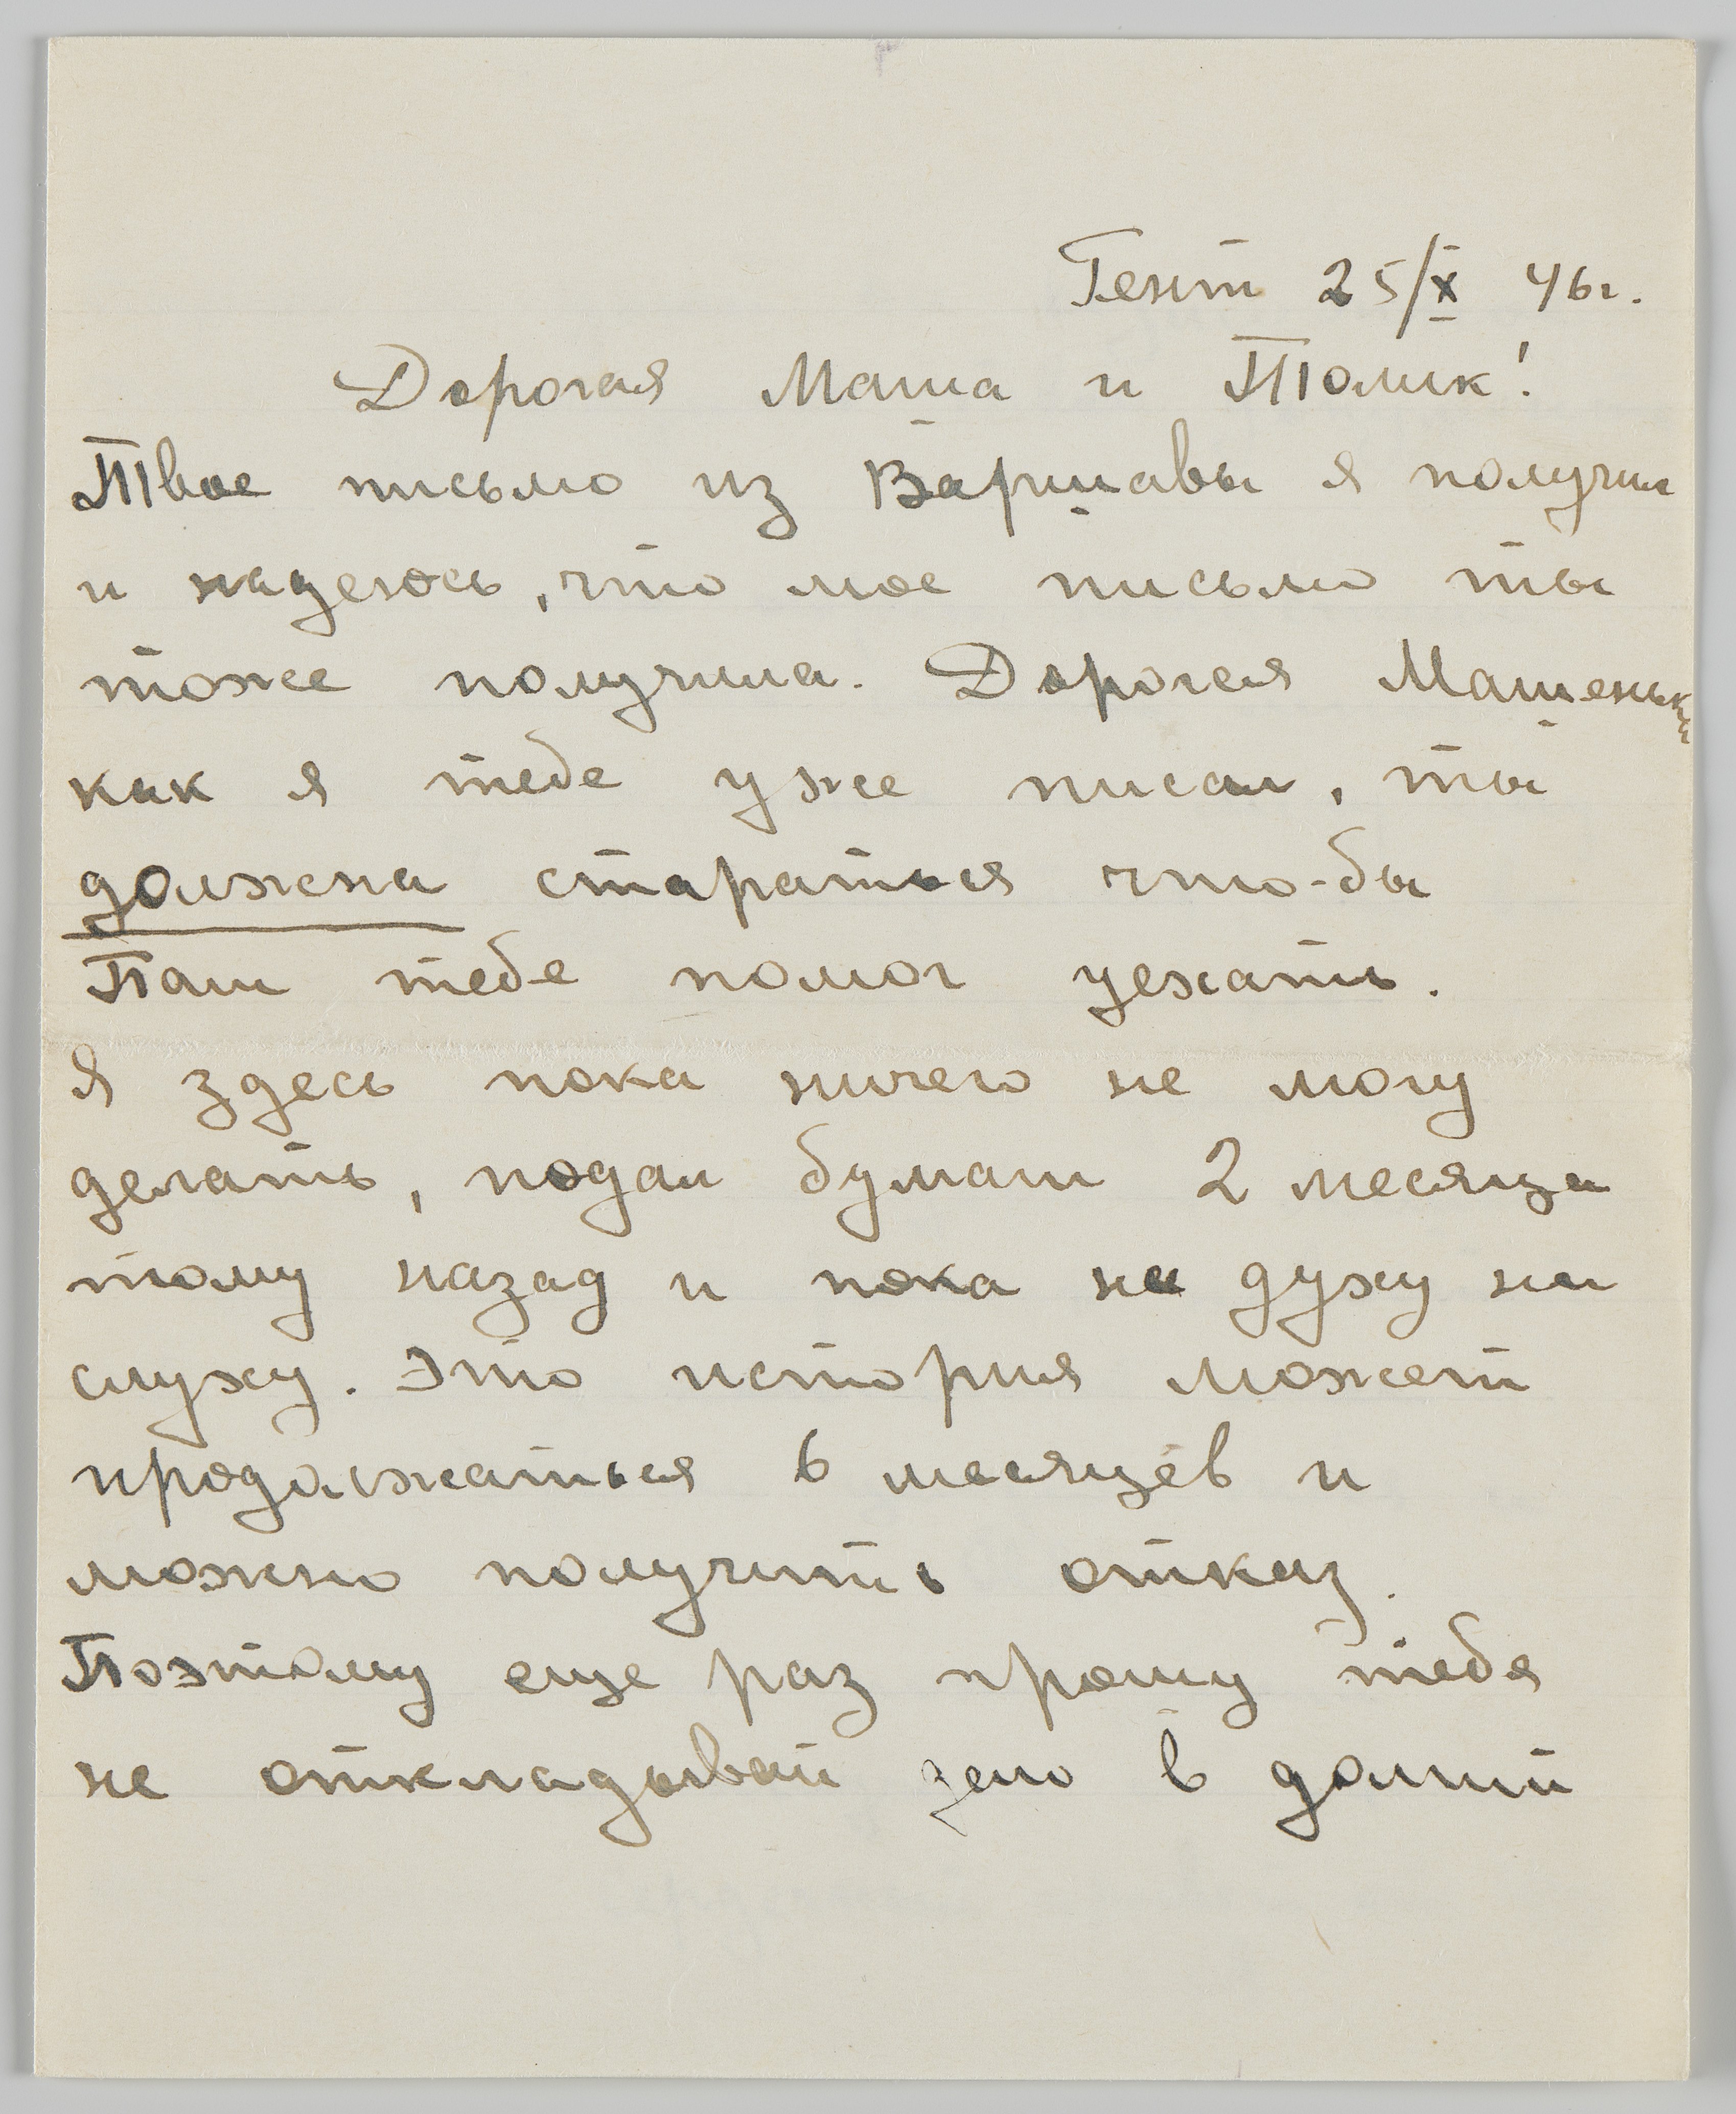 Гент 25/X 46г.
Дорогая Маша и Толик!
Твое письмо из Варшавы я получил
и надеюсь, что мое письмо ты
тоже получила. Дорогая Машенька
как я тебе уже писал, ты
должна стараться что-бы
Паш тебе помог уехать.
Я здесь пока ничего не могу
делать, подал бумаги 2 месяца
тому назад и пока ни духу ни
слуху. Это история может
продолжаться 6 месяцев и
можно получить отказ.
Поэтому еще раз прошу тебя
не откладывай дело в долгий